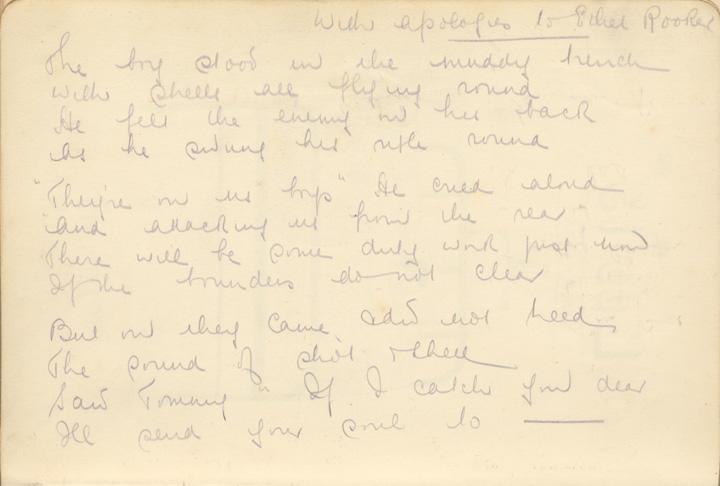 With apologies to Ethel Rooker
The boy stood in the muddy trench
With shells all flying round
He felt the enemy on his back
As he swung his rifle round
"They're on us boys" He cried aloud
"and attacking us from the rear"
There will be some dirty work just now
If the bounders do not clear
But on they came, did not heed,
The sound of shot & shell
Said Tommy "If I catch you dear
I'll send your soul to ———